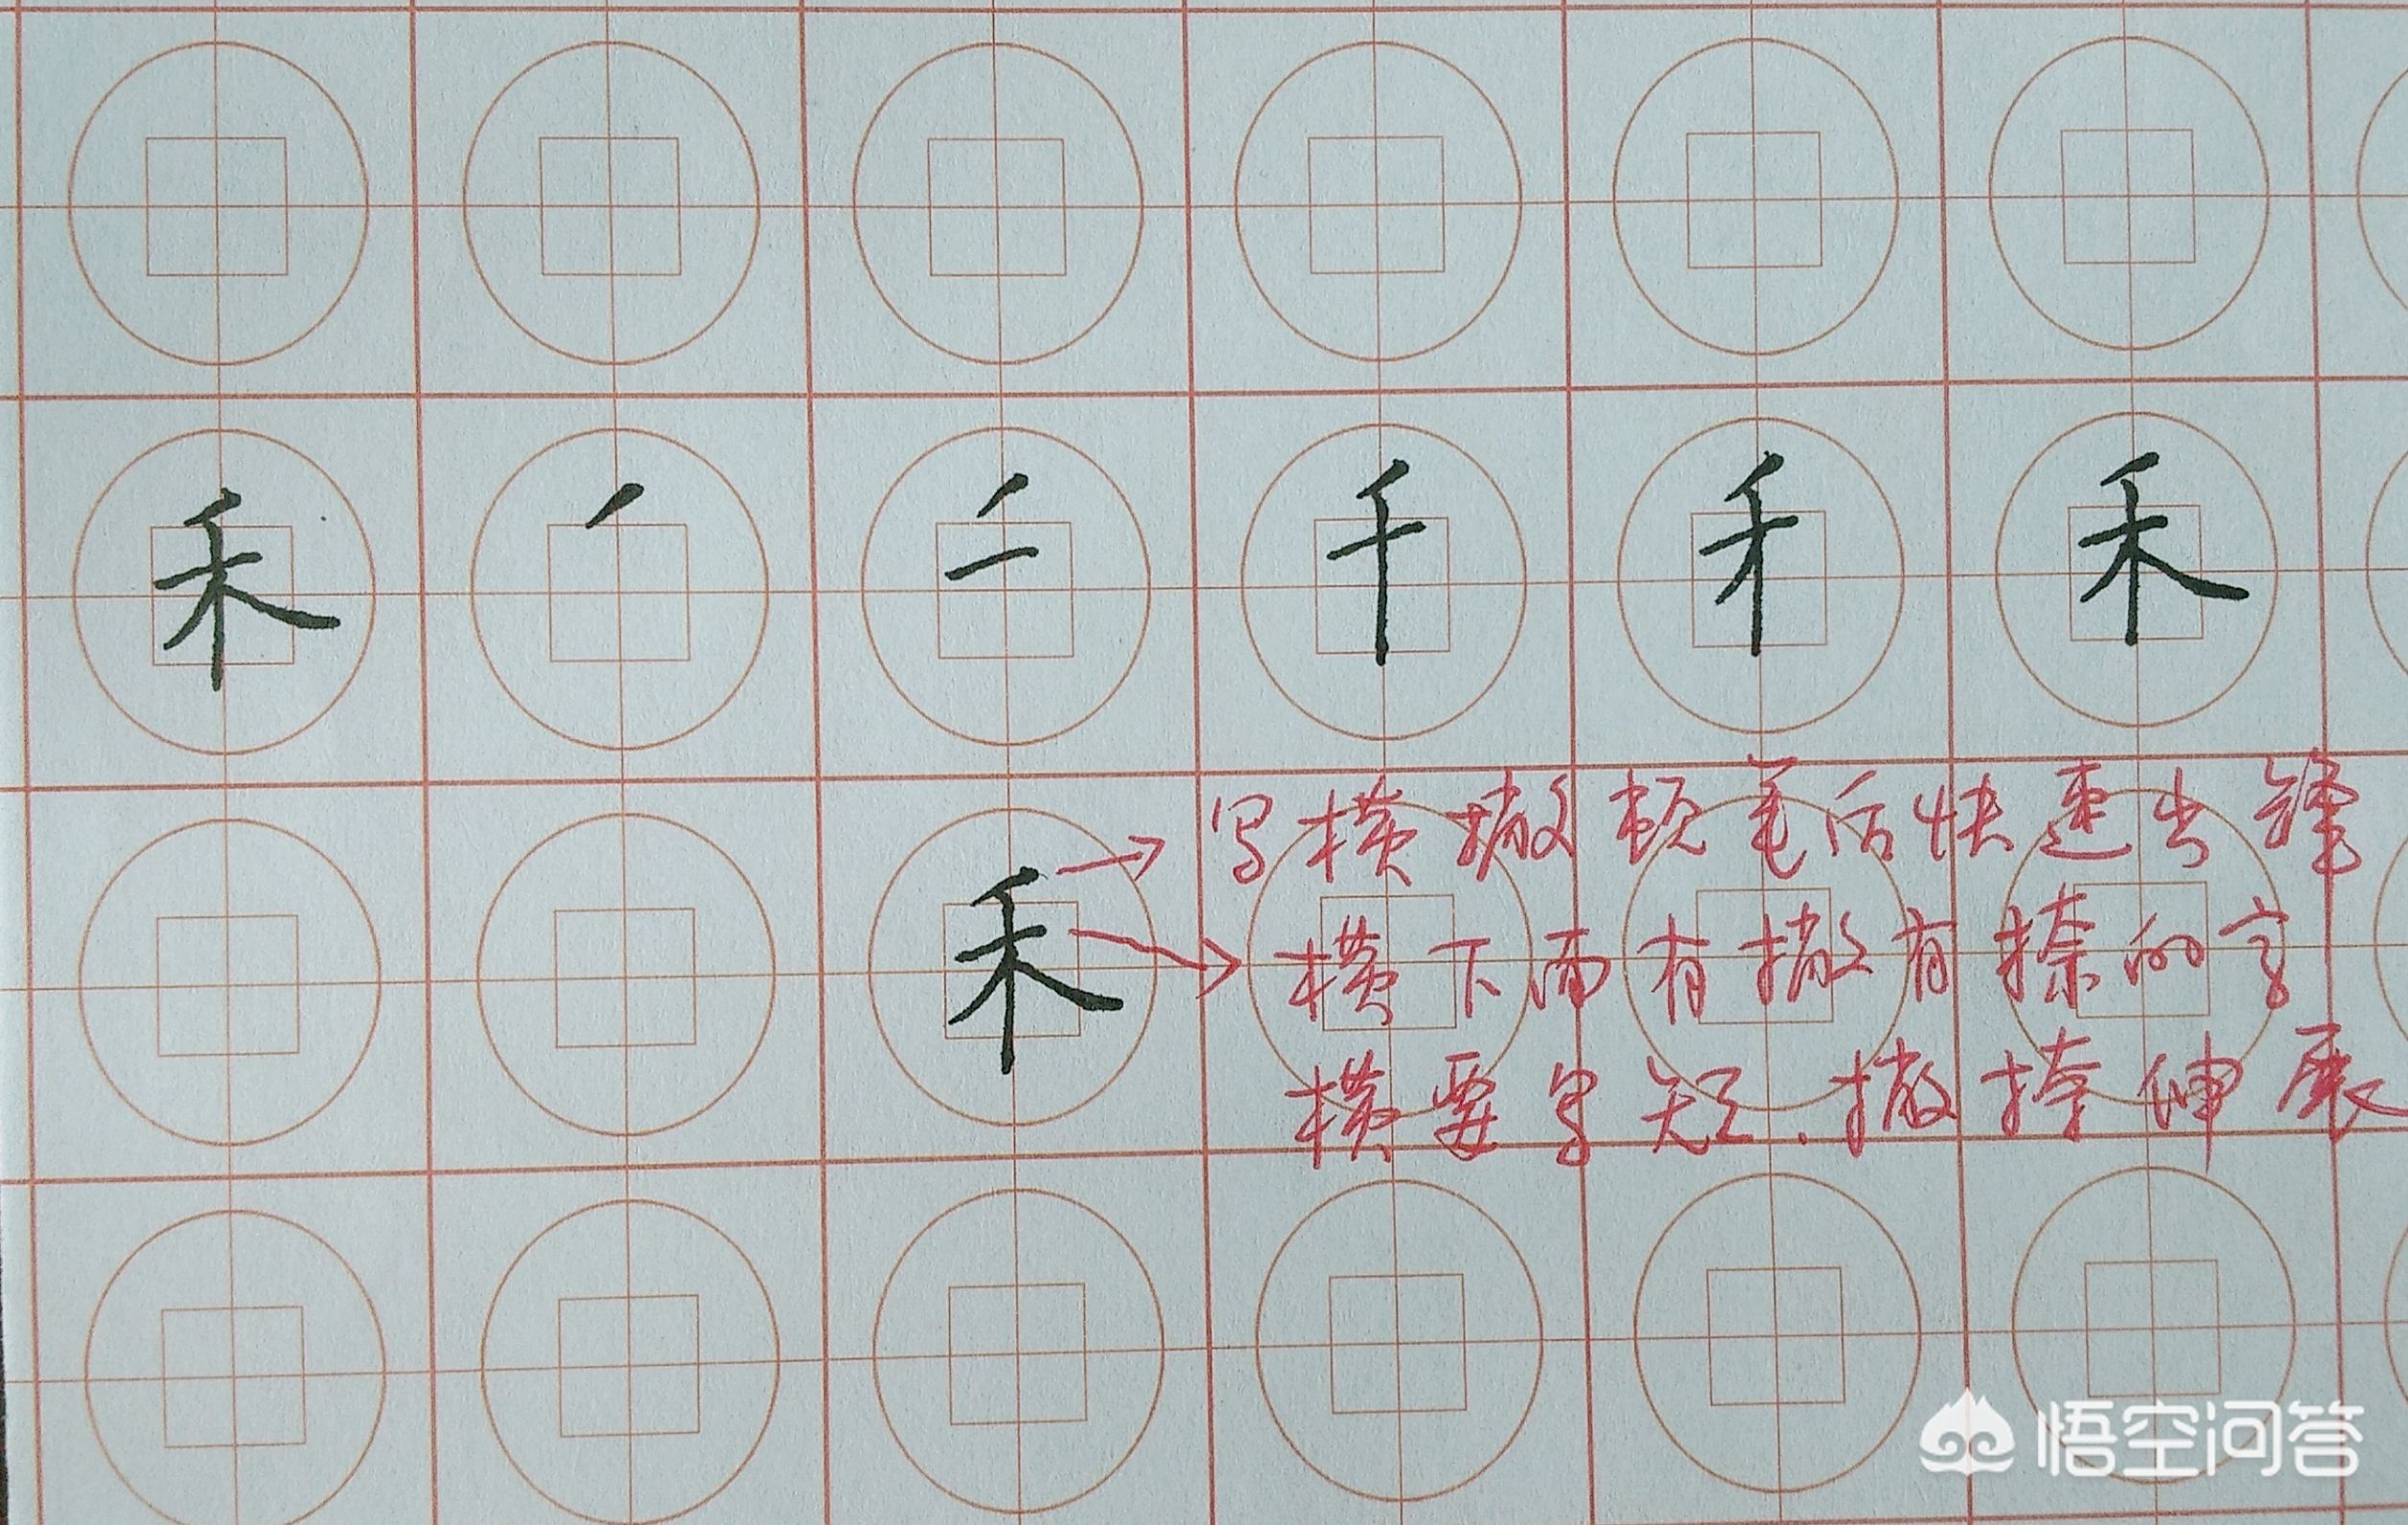 禾 ノ 二 千 禾 禾
禾
写横撇顿笔后快速出锋
横下面有撇有捺的字
横要写短.撇捺伸展
悟空问答